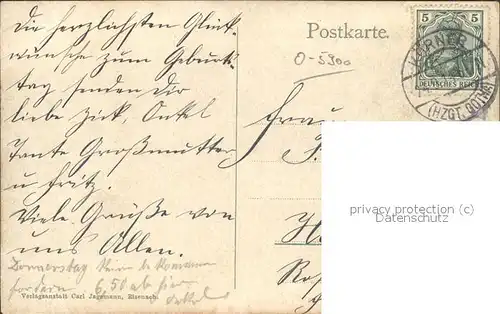 Die herzlichsten Glück-
wünsche zum Geburts-
tag senden dir
liebe Zick, Onkel
Tante Großmutter
u Fritz.
Viele Grüße von
uns Allen.
Donnerstag
6,50 ab hier
Verlagsanstalt Carl Jagemann, Eisenach.
Postkarte.
O-5300
5 5
DEUTSCHES REICH
KÖRNER
(HZGT. GOTHA)
Frau
privacy protection (c)
Datenschutz